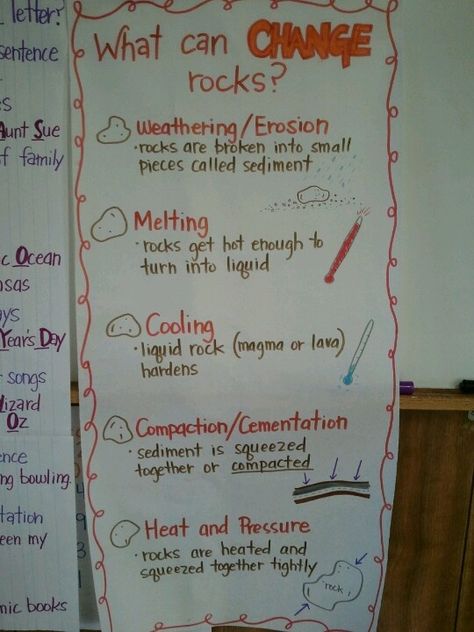 letter?
sentence
Aunt Sue
f family
Ocean
sas
ays
Year's Day
songs
Wizard
Oz
ence
ng bowling.
tation
een my
mic books
What can CHANGE
rocks?
Weathering/Erosion
• rocks are broken into small
pieces called sediment
Melting
• rocks get hot enough to
turn into liquid
Cooling
• liquid rock (magma or lava)
hardens
Compaction/Cementation
• sediment is squeezed
together or compacted
Heat and Pressure
• rocks are heated and
squeezed together tightly
rock